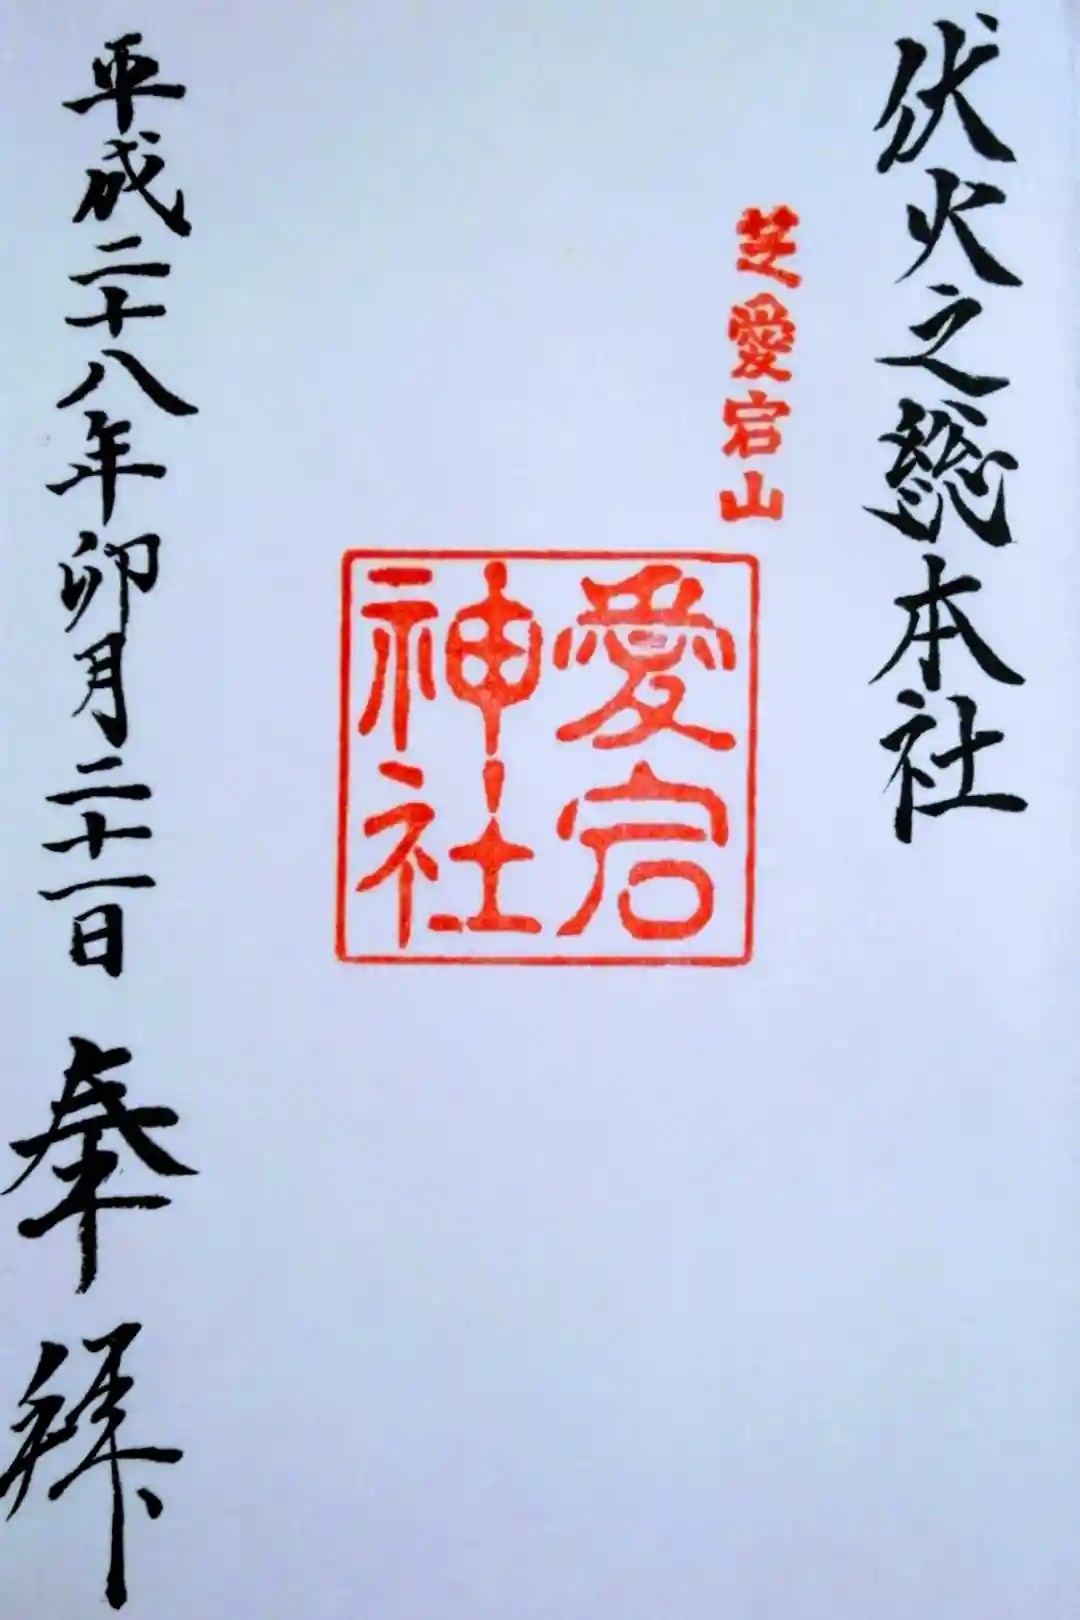 伏火之総本社
芝愛宕山
愛宕
神社
平成二十八年卯月二十一日 奉拝